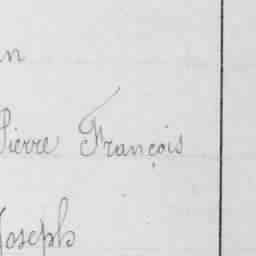 n
Pierre François
Joseph